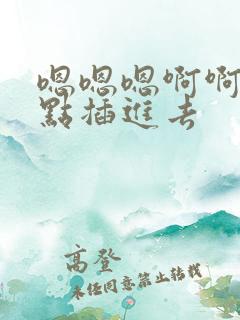 嗯嗯嗯啊啊
點插進去
高登
未经同意禁止转载